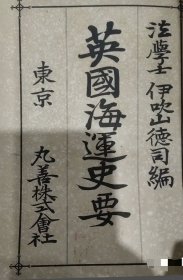 法學士 伊吹山德司編
英國海運史要
東京 丸善株式會社